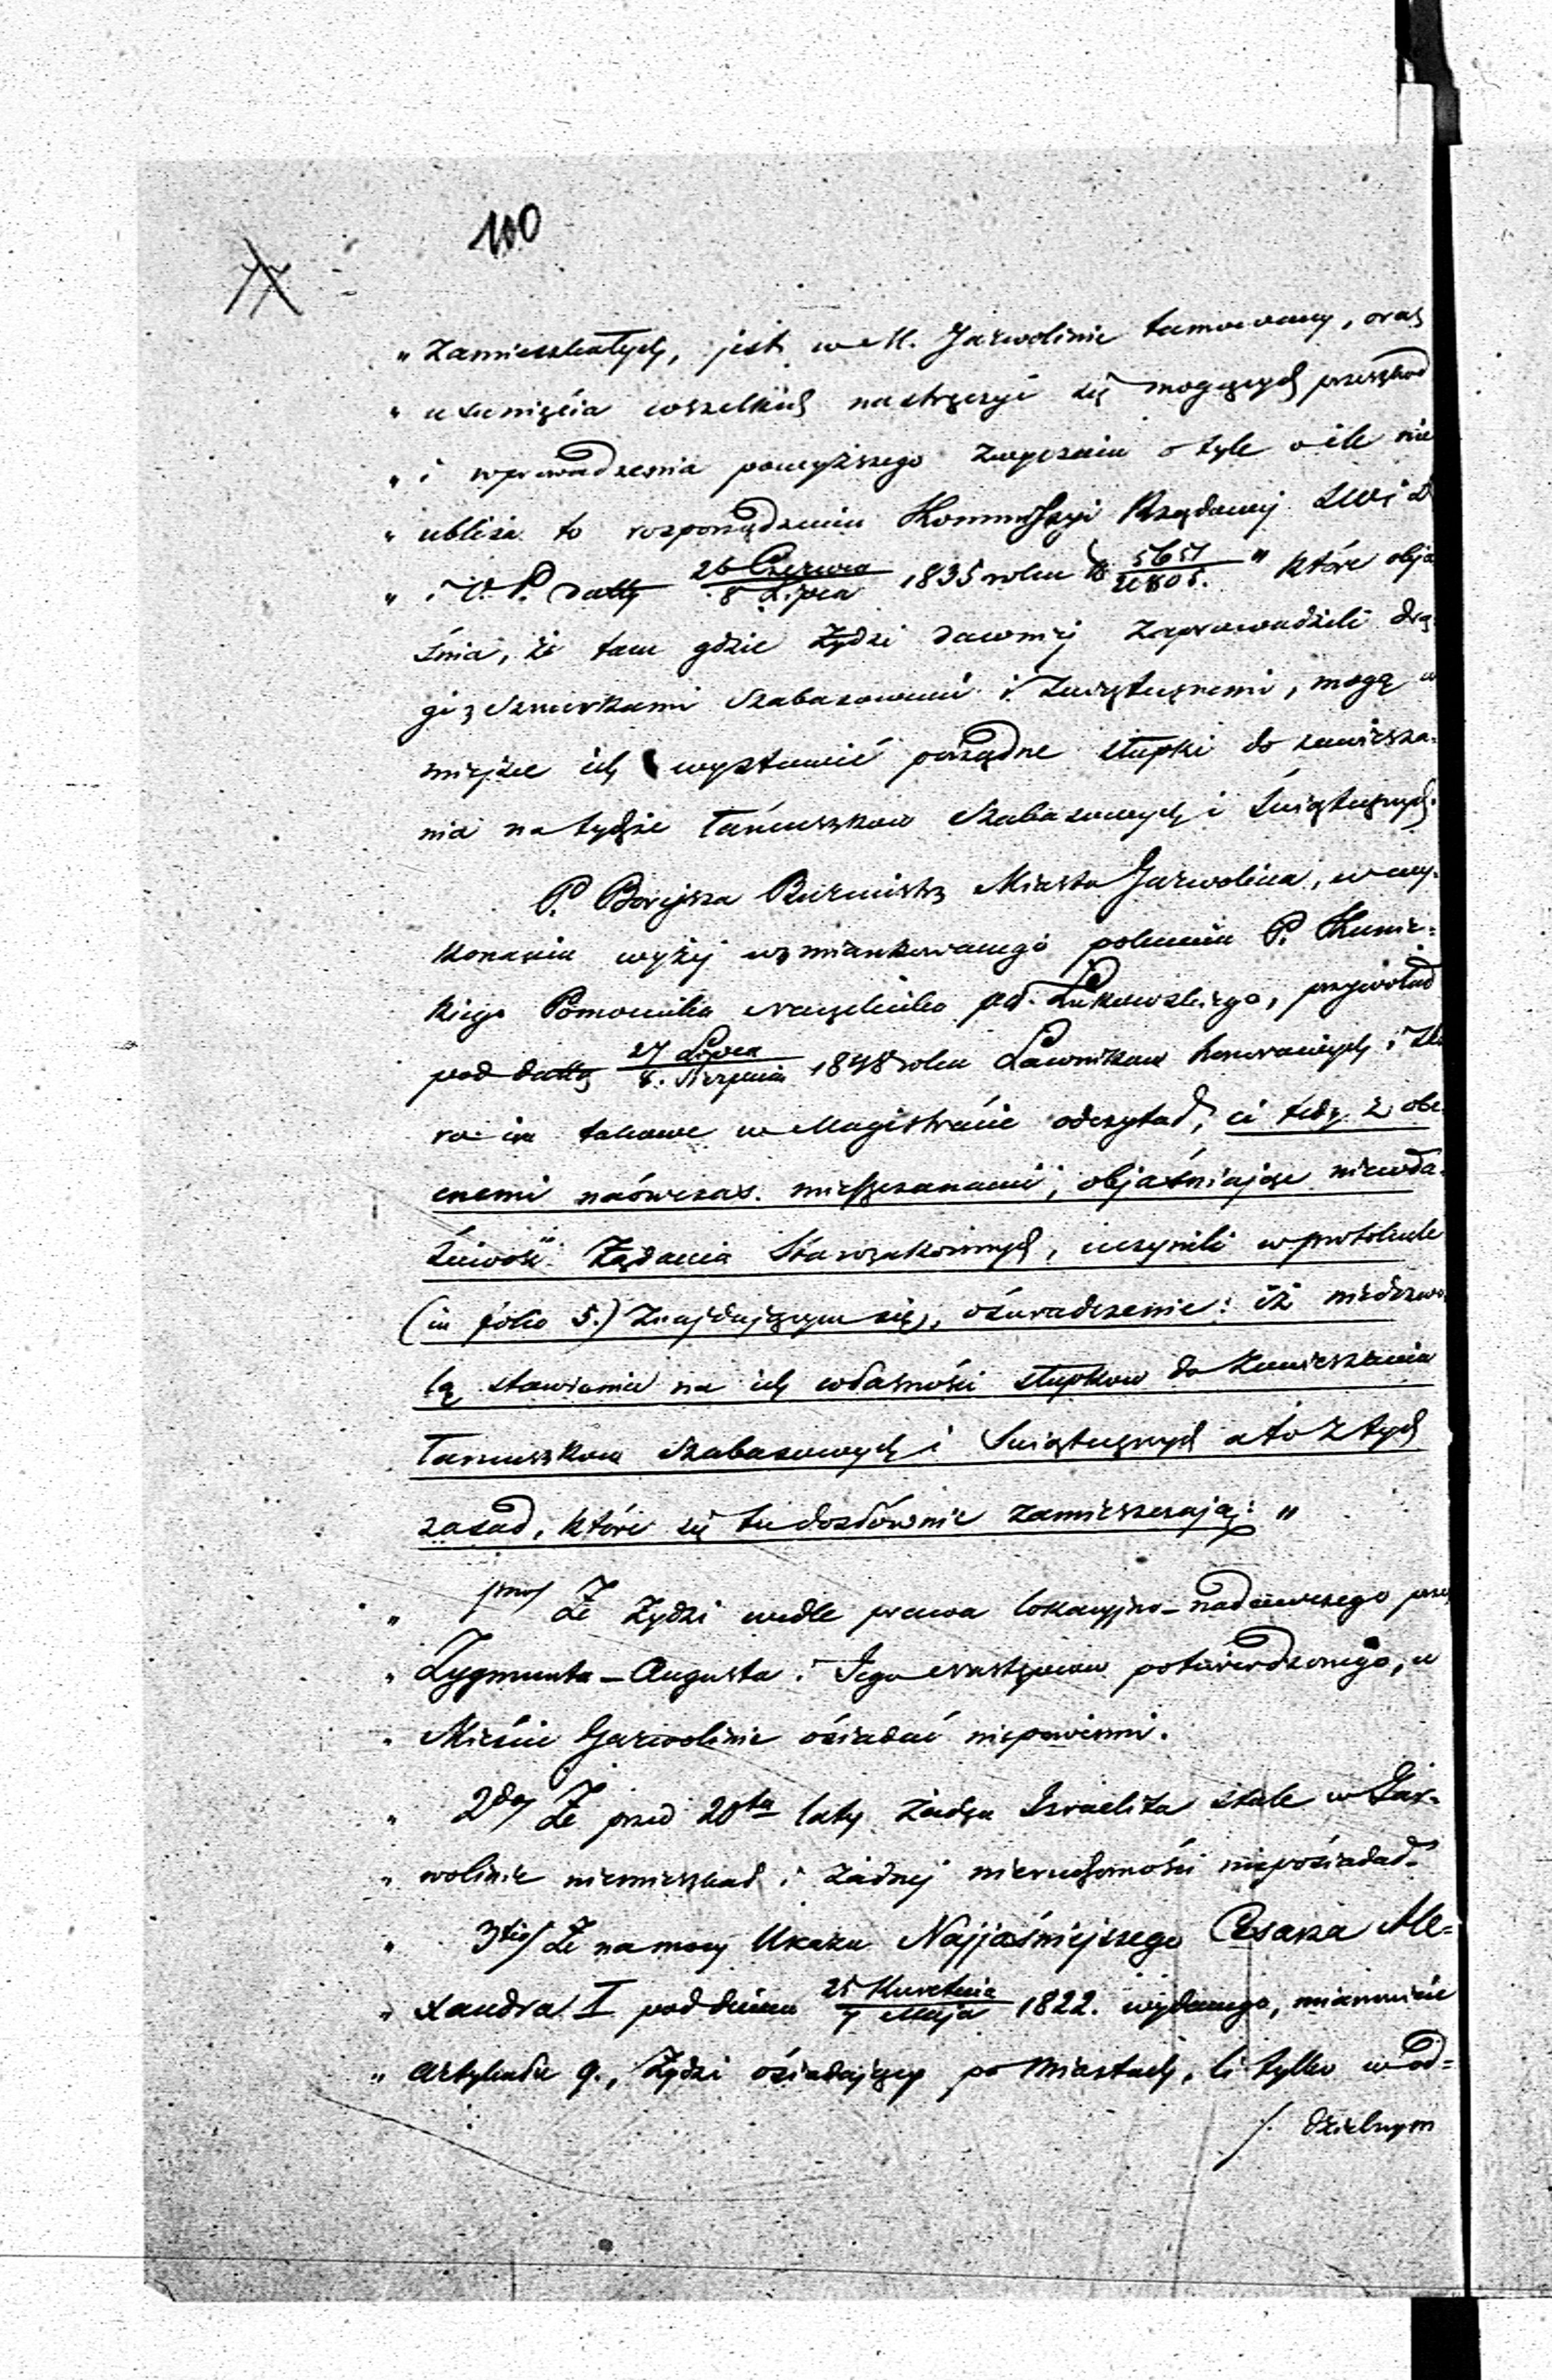 100
77
„ zamieszkałych, jest w M. Garwolinie tamowany, oraz
„ usunięcia wszelkich nastręczyć się mogących przeszkod
„ i wprowadzenia powyższego zwyczaiu o tyle o ile nie
„ ubliża to rozporządzeniu Kommissyi Rządowej S W i D
„ i O. P. datty 26 Czerwca / 8 Lipca 1835 roku N 5651 / 20805. " które obja
śnia, że tam gdzie Żydzi dawniej zaprowadzili drą
gi z sznurkami Szabasowemi i Świątecznemi, mogą w
miejsce ich wystawić porządne słupki do zawiesza-
nia na tychże łańcuszkow Szabasowych i Świątecznych.
P. Boryssa Burmistrz Miasta Garwolina, w wy-
konaniu wyżej wzmiankowanego polecenia P. Kunic-
kiego Pomocnika Naczelnika Pd. Łukowskiego, przywołał
pod dattą 27 Lipca / 8. Sierpnia 1848 roku Ławnikow honorowych i
im takowe w Magistracie odczytał, ci tedy z obe
cnemi naówczas mieszczanami, objaśniając niewła-
ściwość żądania Starozakonnych, uczynili w protokule
(in folio 5.) znajdującym się, oświadczenie: iż niedozwo
lą stawiania na ich własności słupkow do zawieszania
łancuszkow Szabasowych i Swiątecznych a to z tych
zasad, które się tu dosłównie zamieszczają: "
„ 1mo/ Że Żydzi wedle prawa lokacyjno-nadawczego przez
„ Zygmunta-Augusta i Jego następcow potwierdzonego, w
„ Mieście Garwolinie osiadać niepowinni.
„ 2do/ Że przed 20tu laty żaden Izraelita stale w Gar-
„ wolinie niemieszkał i żadnej nieruchomości nieposiadał.
„ 3tio/ Że na mocy Ukazu Najjaśniejszego Cesarza Ale-
„ xandra I pod dniem 25 Kwietnia / 7 Maja 1822. wydanego, mianowicie
„ Artykułu 9., Żydzi osiadający po Miastach, li tylko w od-
/. dzielnym